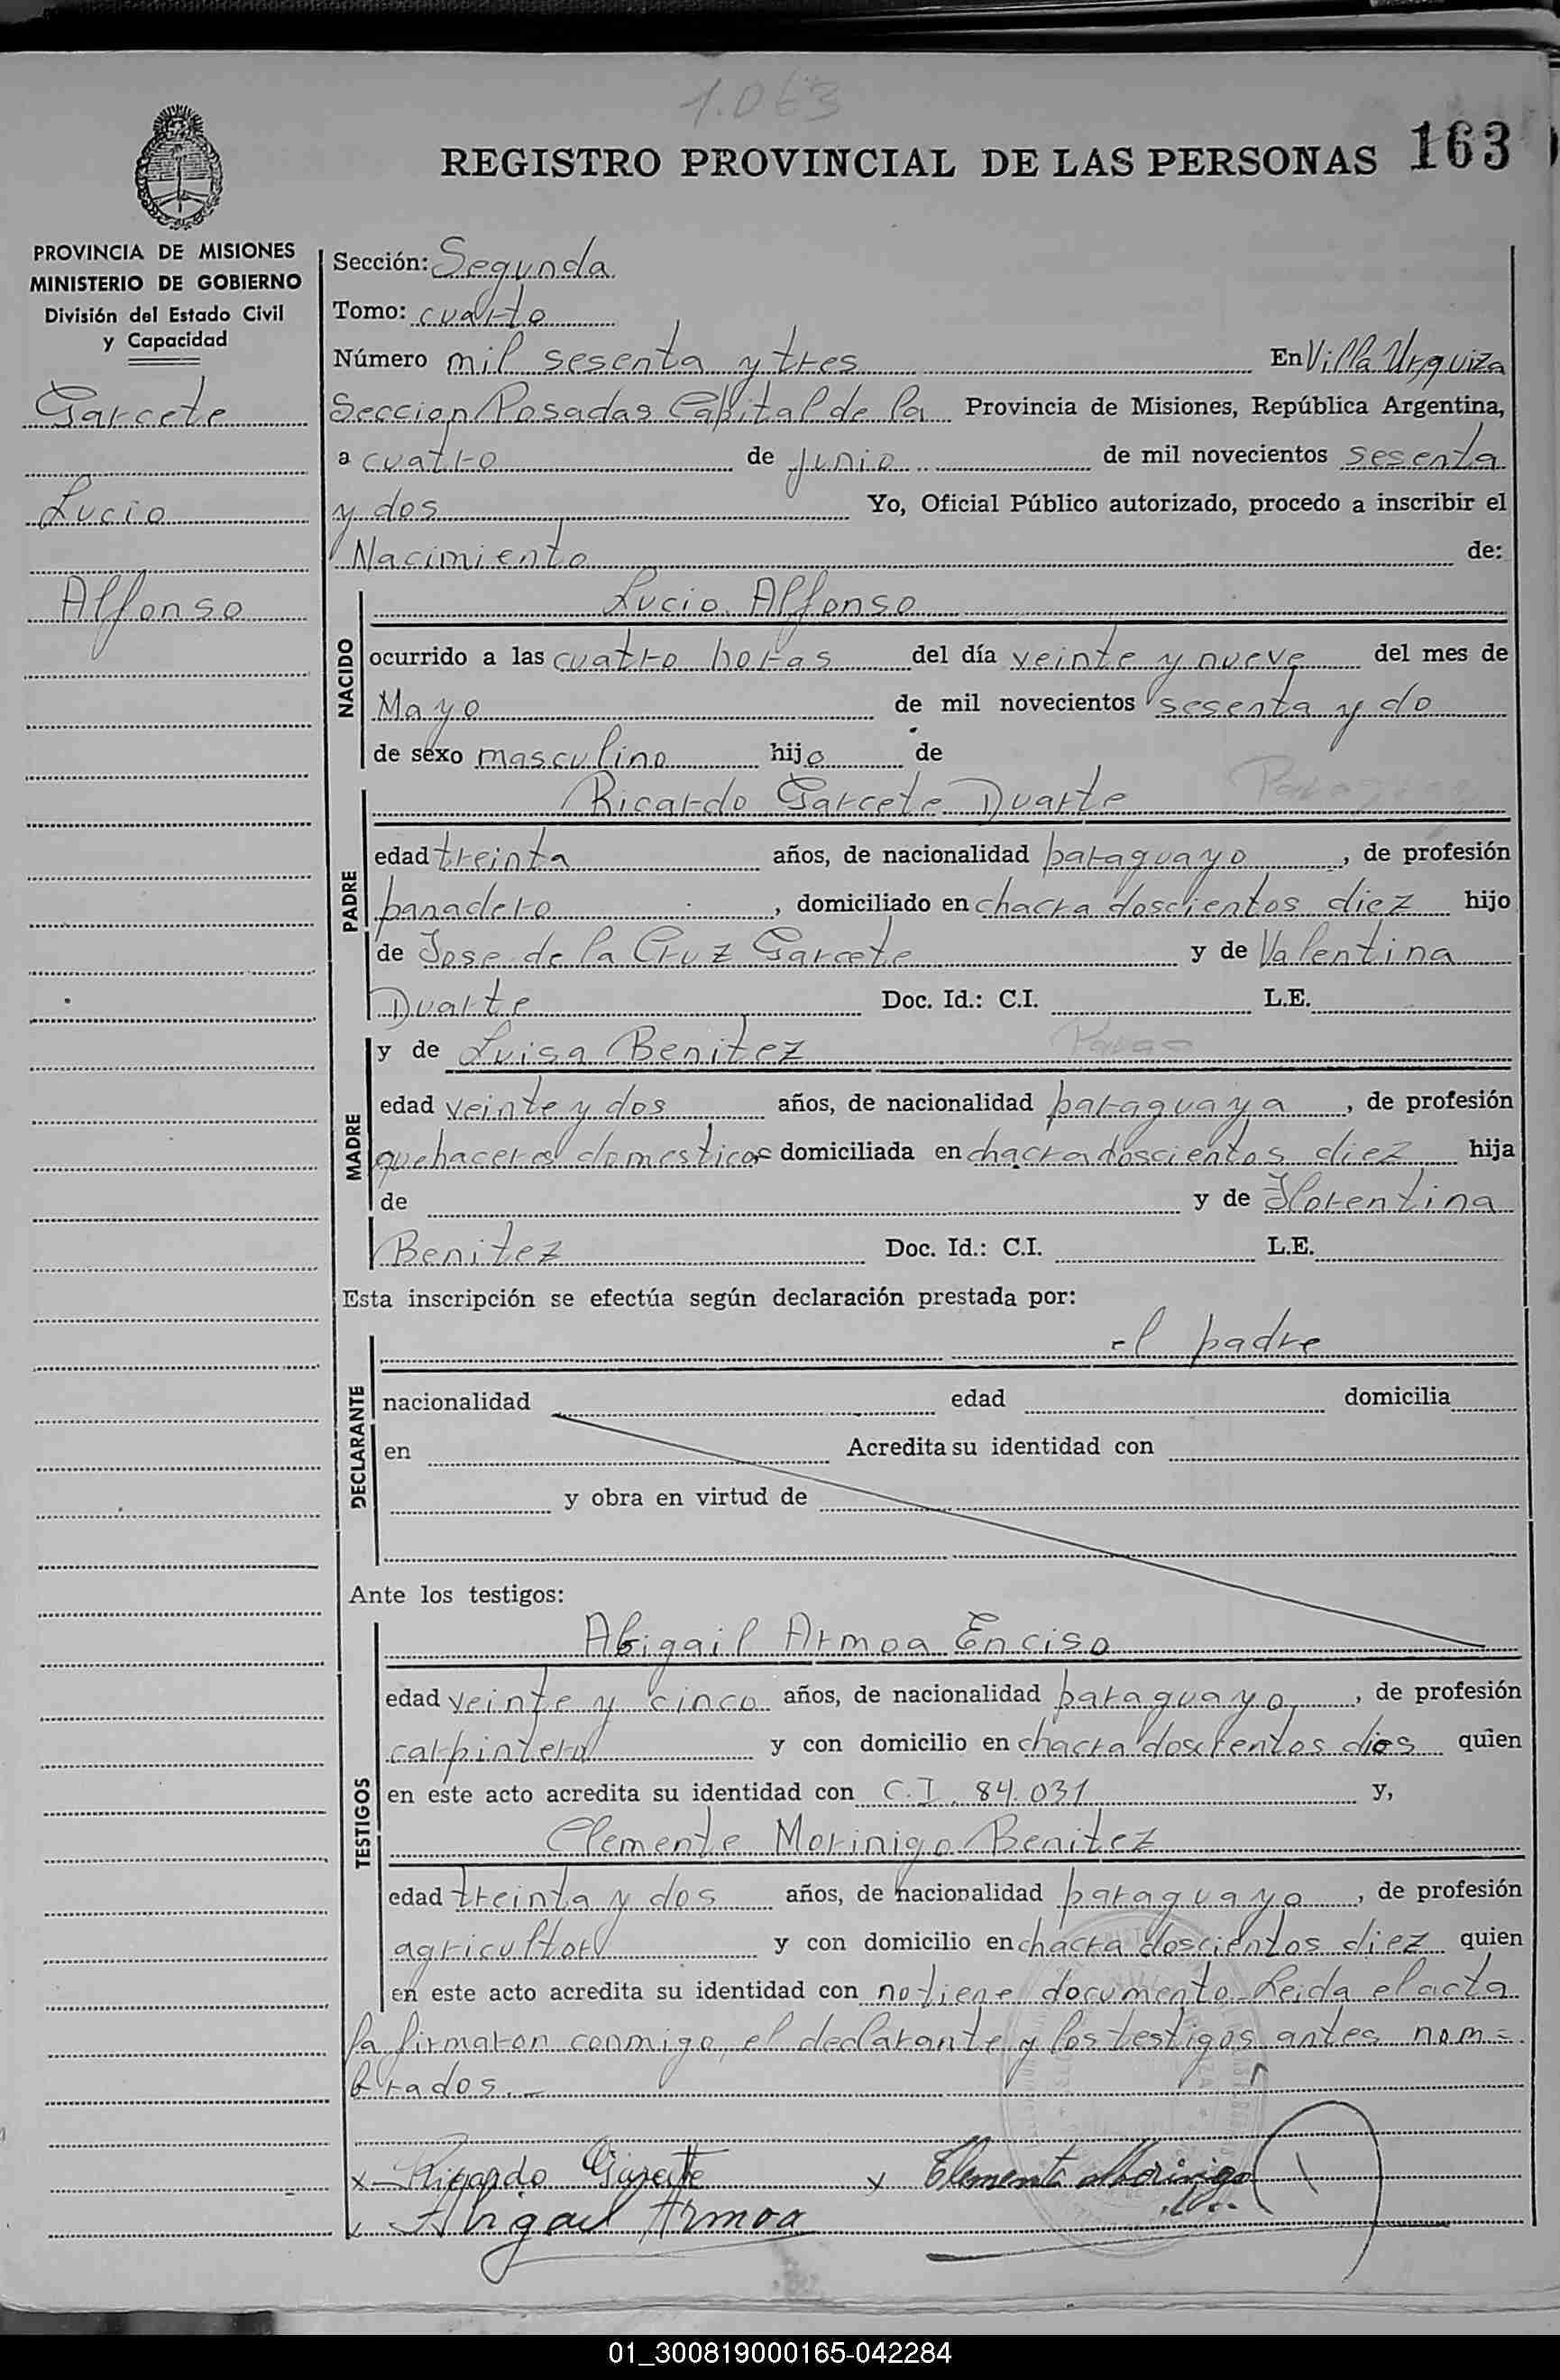 1.063
REGISTRO PROVINCIAL DE LAS PERSONAS 163
PROVINCIA DE MISIONES
MINISTERIO DE GOBIERNO
División del Estado Civil
y Capacidad
Garcete
Lucio
Alfonso
Sección: Segunda
Tomo: cuarto
Número mil sesenta y tres En Villa Urquiza
Seccion Posadas Capital de la Provincia de Misiones, República Argentina,
a cuatro de Junio de mil novecientos sesenta
y dos Yo, Oficial Público autorizado, procedo a inscribir el
Nacimiento de:
NACIDO
Lucio Alfonso
ocurrido a las cuatro horas del día veinte y nueve del mes de
Mayo de mil novecientos sesenta y do
de sexo masculino hijo de
PADRE
Ricardo Garcete Duarte Paraguay
edad treinta años, de nacionalidad paraguayo, de profesión
panadero, domiciliado en chacra doscientos diez hijo
de Jose de la Cruz Garcete y de Valentina
Duarte Doc. Id.: C.I. L.E.
MADRE
y de Luisa Benitez
edad veinte y dos años, de nacionalidad paraguaya, de profesión
quehaceres domesticos domiciliada en chacra doscientos diez hija
de y de Florentina
Benitez Doc. Id.: C.I. L.E.
Esta inscripción se efectúa según declaración prestada por:
DECLARANTE
el padre
nacionalidad edad domicilia
en Acredita su identidad con
y obra en virtud de
Ante los testigos:
TESTIGOS
Abigail Armoa Enciso
edad veinte y cinco años, de nacionalidad paraguayo, de profesión
carpintero y con domicilio en chacra doscientos dies quien
en este acto acredita su identidad con C.I. 84.031 y,
Clemente Morinigo Benitez
edad treinta y dos años, de nacionalidad paraguayo, de profesión
agricultor y con domicilio en chacra doscientos diez quien
en este acto acredita su identidad con no tiene documento. Leida el acta
la firmaron conmigo, el declarante y los testigos antes nom=
brados.-
x Ricardo Garcete x Clemente Morinigo
x Abigail Armoa
01_300819000165-042284